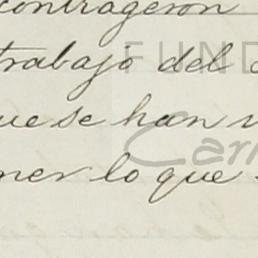 contrageron
trabajo del
que se han
ner lo que
FUND
Carm